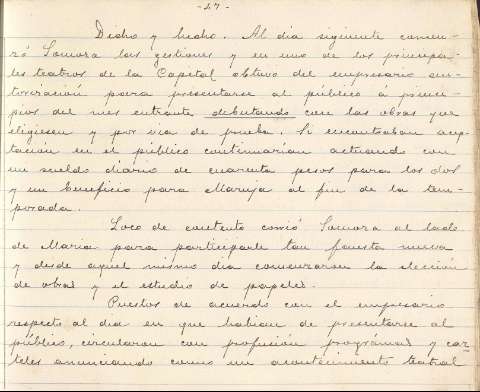 -27-
Dicho y hecho. Al dia siguiente comen-
zó Zamora las gestiones y en uno de los principa-
les teatros de la Capital obtuvo del empresario au-
torización para presentarse al público á princi-
pios del mes entrante debutando con las obras que
eligiesen y por via de prueba. Si encontraban acep-
tación en el público continuarían actuando con
un sueldo diario de cuarenta pesos para los dos
y un beneficio para Maruja al fin de la tem-
porada.
Loco de contento corrió Zamora al lado
de María para participarle tan fausta nueva
y desde aquel mismo dia comenzaron la elección
de obras y el estudio de papeles.
Puestos de acuerdo con el empresario
respecto al dia en que habian de presentarse al
público, circularon con profusión programas y car-
teles anunciando como un acontecimiento teatral